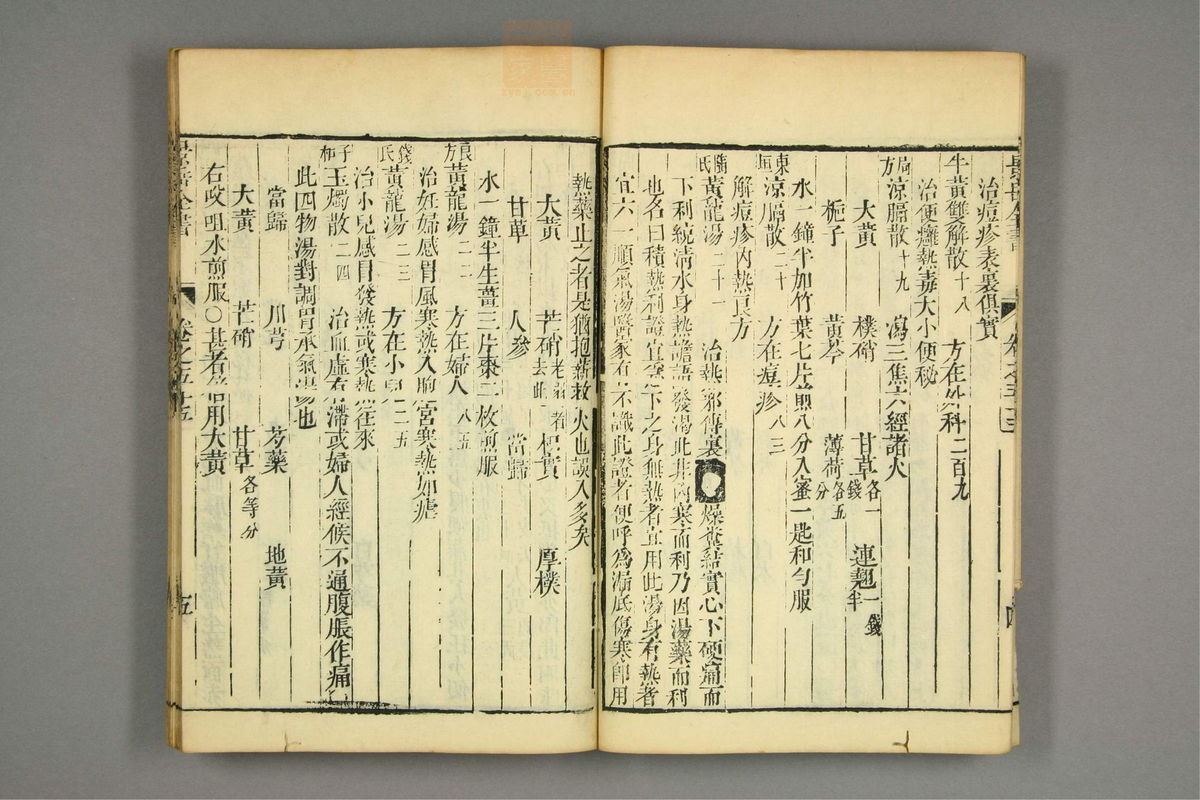 治痘疹表裏俱實
牛黃雙解散十八　方在外科二百九
治便癰熱毒大小便秘
局方涼膈散十九　瀉三焦六經諸火
大黃　樸硝　甘草各一錢　連翹一錢半
梔子　黃芩　薄荷各五分
水一鐘半加竹葉七片煎八分入蜜一匙和勻服
東垣涼膈散二十　方在痘疹八三
解痘疹內熱良方
陶氏黃龍湯二十一　治熱邪傳裏 燥糞結實心下硬痛而
下利純清水身熱譫語發渴此非內寒而利乃因湯藥而利
也名曰積熱利證宜急下之身無熱者宜用此湯身有熱者
宜六一順氣湯醫家有不識此證者便呼為漏底傷寒即用
熱藥止之者是猶抱薪救火也誤人多矣
大黃　芒硝老弱者去此　枳實　厚樸
甘草　人參　當歸
水一鐘半生薑三片棗二枚煎服
良方黃龍湯二二　方在婦人八五
治妊婦感冒風寒熱入胞宮寒熱如瘧
錢氏黃龍湯二三　方在小兒二五
治小兒感冒發熱或寒熱往來
子和玉燭散二四　治血虛有滯或婦人經候不通腹脹作痛
此四物湯對調胃承氣湯也
當歸　川芎　芍藥　地黃
大黃　芒硝　甘草各等分
右㕮咀水煎服○甚者倍用大黃
卷之五十五
五